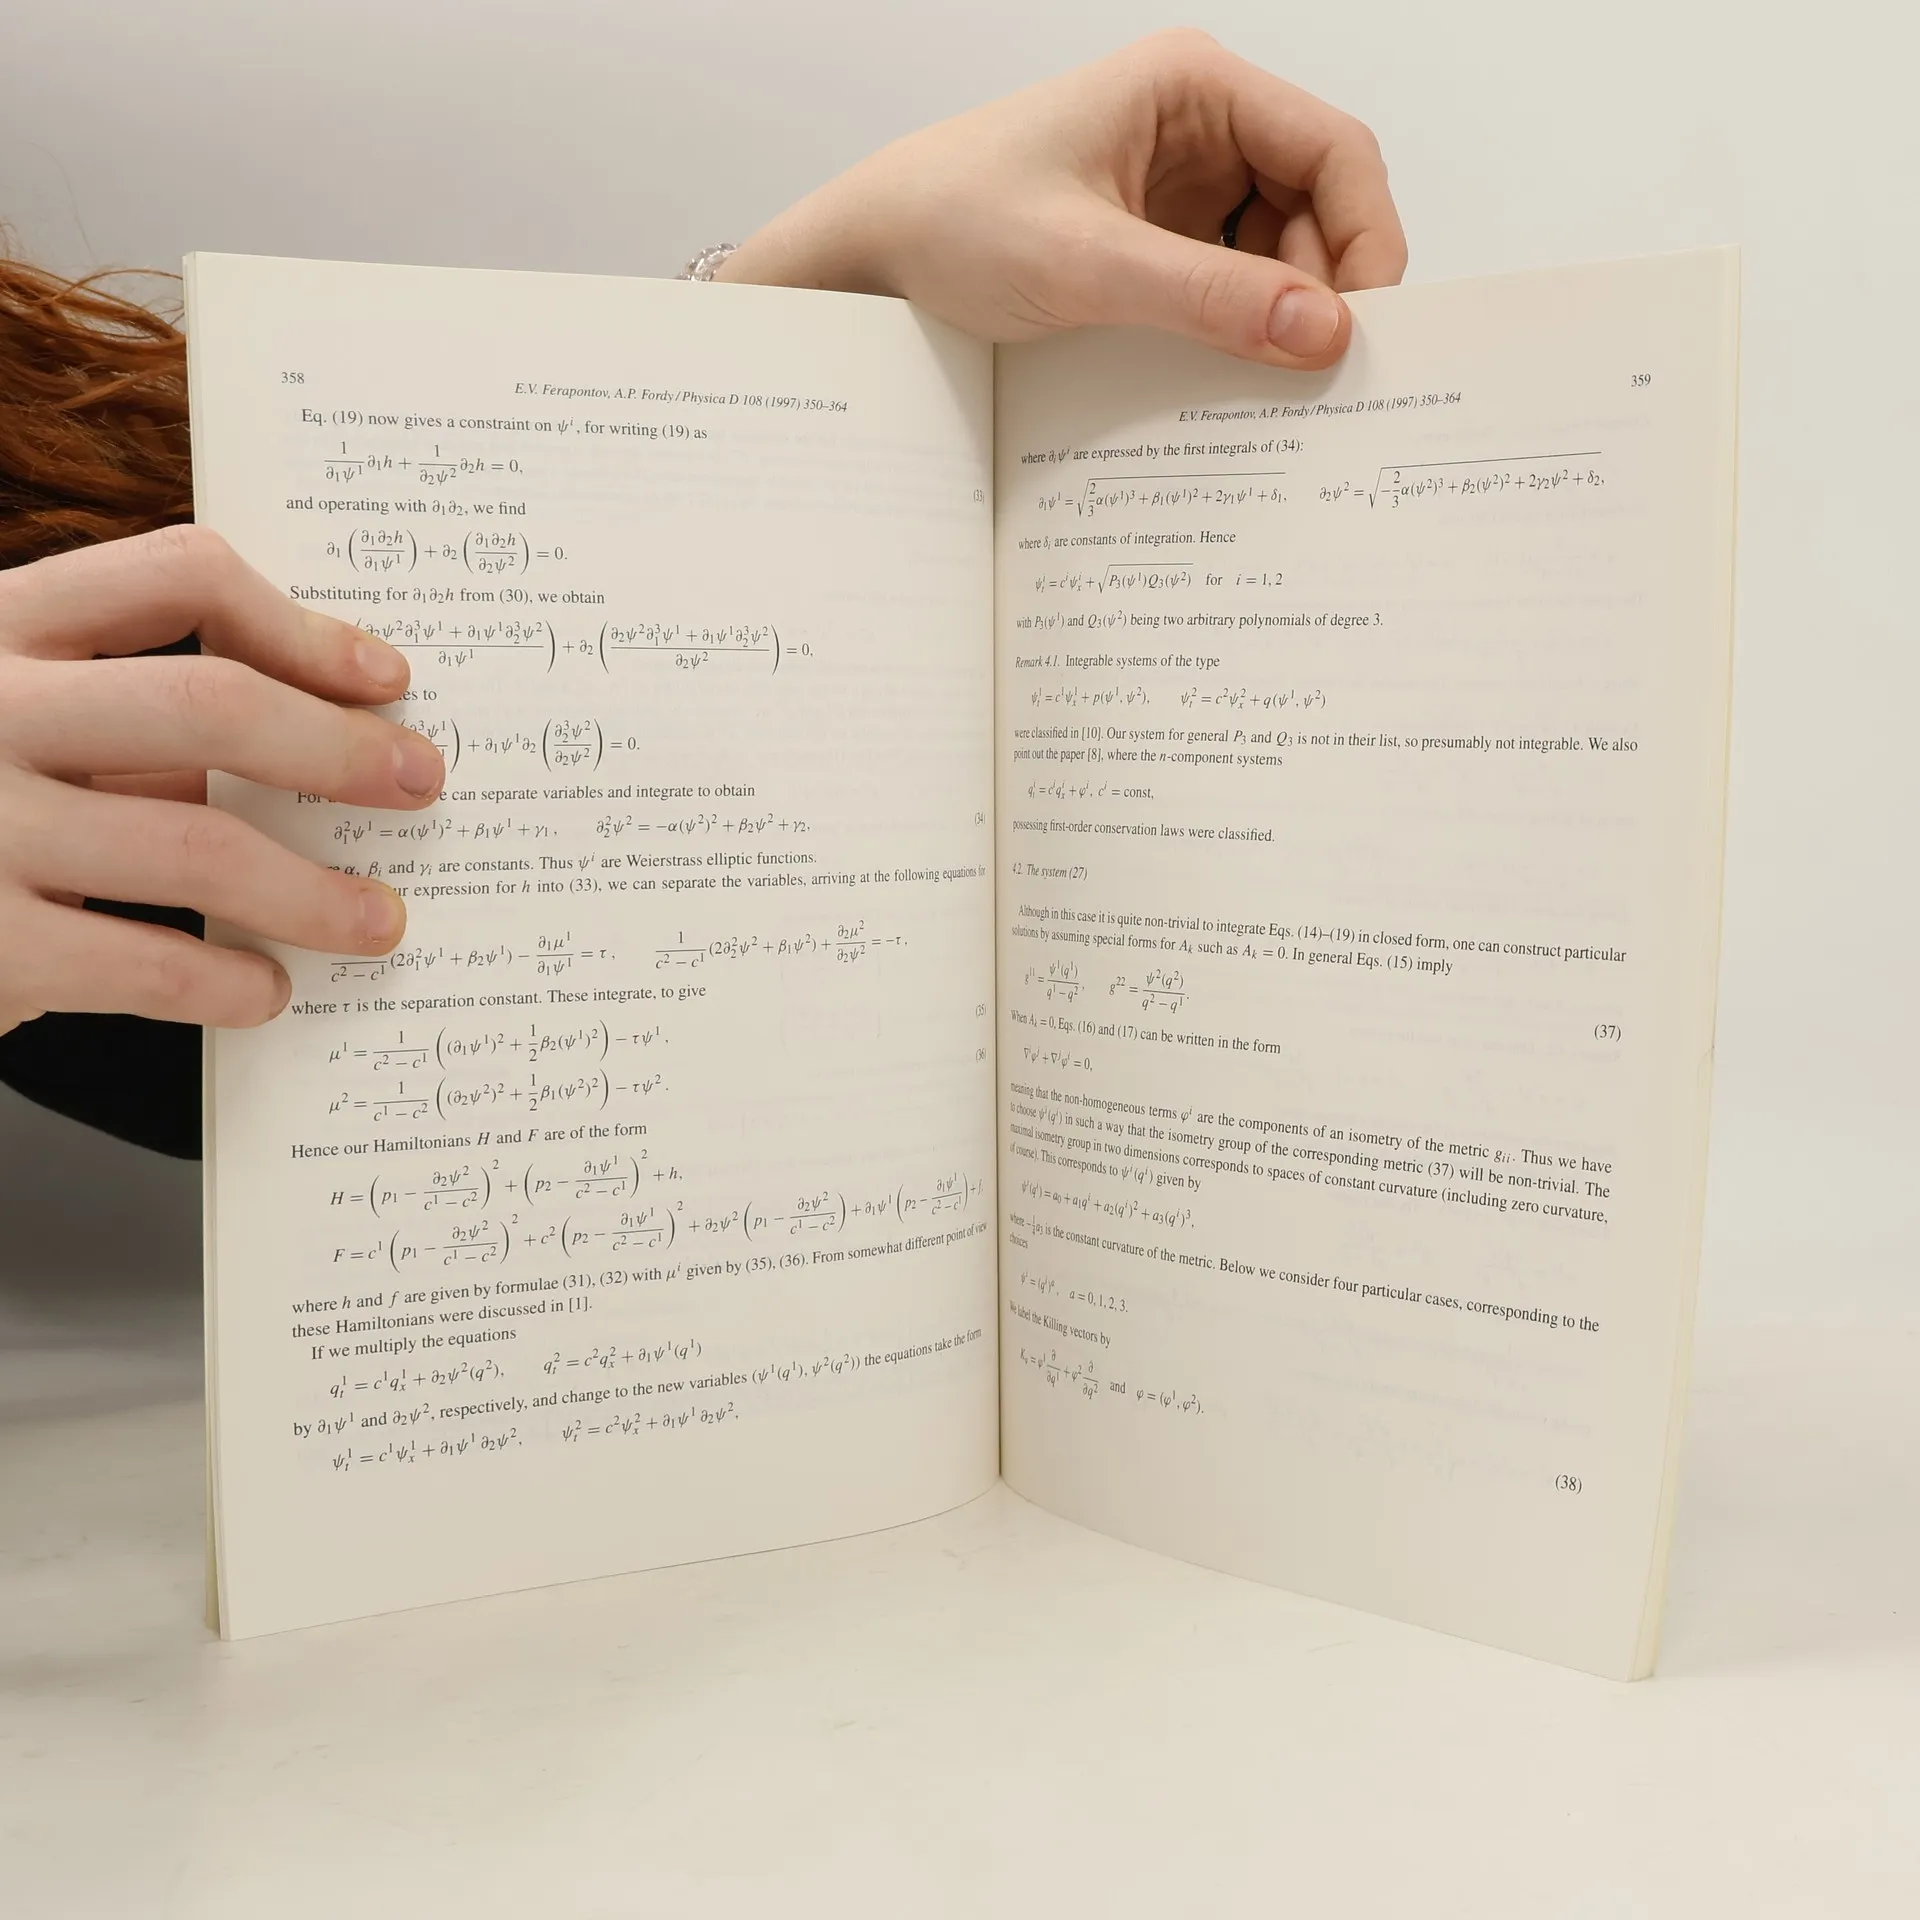 358
E.V. Ferapontov, A.P. Fordy / Physica D 108 (1997) 350–364
Eq. (19) now gives a constraint on ψ^i, for writing (19) as
1/(∂₁ψ¹) ∂₁h + 1/(∂₂ψ²) ∂₂h = 0, (33)
and operating with ∂₁∂₂, we find
∂₁(∂₁∂₂h/∂₁ψ¹) + ∂₂(∂₁∂₂h/∂₂ψ²) = 0.
Substituting for ∂₁∂₂h from (30), we obtain
((∂₂ψ²∂₁³ψ¹ + ∂₁ψ¹∂₂³ψ²)/∂₁ψ¹) + ∂₂((∂₂ψ²∂₁³ψ¹ + ∂₁ψ¹∂₂³ψ²)/∂₂ψ²) = 0,
to
+ ∂₁ψ¹∂₂(∂₂³ψ²/∂₂ψ²) = 0.
can separate variables and integrate to obtain
∂₁²ψ¹ = α(ψ¹)² + β₁ψ¹ + γ₁, ∂₂²ψ² = −α(ψ²)² + β₂ψ² + γ₂, (34)
α, β_i and γ_i are constants. Thus ψ^i are Weierstrass elliptic functions.
expression for h into (33), we can separate the variables, arriving at the following equations for
/(c² − c¹) (2∂₁²ψ¹ + β₂ψ¹) − ∂₁μ¹/∂₁ψ¹ = τ, 1/(c² − c¹) (2∂₂²ψ² + β₁ψ²) + ∂₂μ²/∂₂ψ² = −τ,
where τ is the separation constant. These integrate, to give
μ¹ = 1/(c² − c¹) ((∂₁ψ¹)² + ½β₂(ψ¹)²) − τψ¹, (35)
μ² = 1/(c¹ − c²) ((∂₂ψ²)² + ½β₁(ψ²)²) − τψ². (36)
Hence our Hamiltonians H and F are of the form
H = (p₁ − ∂₂ψ²/(c¹ − c²))² + (p₂ − ∂₁ψ¹/(c² − c¹))² + h,
F = c¹(p₁ − ∂₂ψ²/(c¹ − c²))² + c²(p₂ − ∂₁ψ¹/(c² − c¹))² + ∂₂ψ²(p₁ − ∂₂ψ²/(c¹ − c²)) + ∂₁ψ¹(p₂ − ∂₁ψ¹/(c² − c¹)) + f,
where h and f are given by formulae (31), (32) with μ^i given by (35), (36). From somewhat different point of view
these Hamiltonians were discussed in [1].
If we multiply the equations
q_t¹ = c¹q_x¹ + ∂₂ψ²(q²), q_t² = c²q_x² + ∂₁ψ¹(q¹)
by ∂₁ψ¹ and ∂₂ψ², respectively, and change to the new variables (ψ¹(q¹), ψ²(q²)) the equations take the form
ψ_t¹ = c¹ψ_x¹ + ∂₁ψ¹ ∂₂ψ², ψ_t² = c²ψ_x² + ∂₁ψ¹ ∂₂ψ²,
E.V. Ferapontov, A.P. Fordy / Physica D 108 (1997) 350–364
359
where ∂_iψ^i are expressed by the first integrals of (34):
∂₁ψ¹ = √(⅔α(ψ¹)³ + β₁(ψ¹)² + 2γ₁ψ¹ + δ₁), ∂₂ψ² = √(−⅔α(ψ²)³ + β₂(ψ²)² + 2γ₂ψ² + δ₂),
where δ_i are constants of integration. Hence
ψ_t^i = c^iψ_x^i + √(P₃(ψ¹)Q₃(ψ²)) for i = 1, 2
with P₃(ψ¹) and Q₃(ψ²) being two arbitrary polynomials of degree 3.
Remark 4.1. Integrable systems of the type
ψ_t¹ = c¹ψ_x¹ + p(ψ¹, ψ²), ψ_t² = c²ψ_x² + q(ψ¹, ψ²)
were classified in [10]. Our system for general P₃ and Q₃ is not in their list, so presumably not integrable. We also
point out the paper [8], where the n-component systems
q_t^i = c^iq_x^i + φ^i, c^i = const,
possessing first-order conservation laws were classified.
4.2. The system (27)
Although in this case it is quite non-trivial to integrate Eqs. (14)–(19) in closed form, one can construct particular
solutions by assuming special forms for A_k such as A_k = 0. In general Eqs. (15) imply
g¹¹ = ψ¹(q¹)/(q¹ − q²), g²² = ψ²(q²)/(q² − q¹). (37)
When A_k = 0, Eqs. (16) and (17) can be written in the form
∇^iφ^j + ∇^jφ^i = 0,
meaning that the non-homogeneous terms φ^i are the components of an isometry of the metric g_ii. Thus we have
to choose ψ^i(q^i) in such a way that the isometry group of the corresponding metric (37) will be non-trivial. The
maximal isometry group in two dimensions corresponds to spaces of constant curvature (including zero curvature,
of course). This corresponds to ψ^i(q^i) given by
ψ^i(q^i) = a₀ + a₁q^i + a₂(q^i)² + a₃(q^i)³,
where −¼a₃ is the constant curvature of the metric. Below we consider four particular cases, corresponding to the
choices
ψ^i = (q^i)^a, a = 0, 1, 2, 3.
We label the Killing vectors by
K_φ = φ¹ ∂/∂q¹ + φ² ∂/∂q² and φ = (φ¹, φ²). (38)